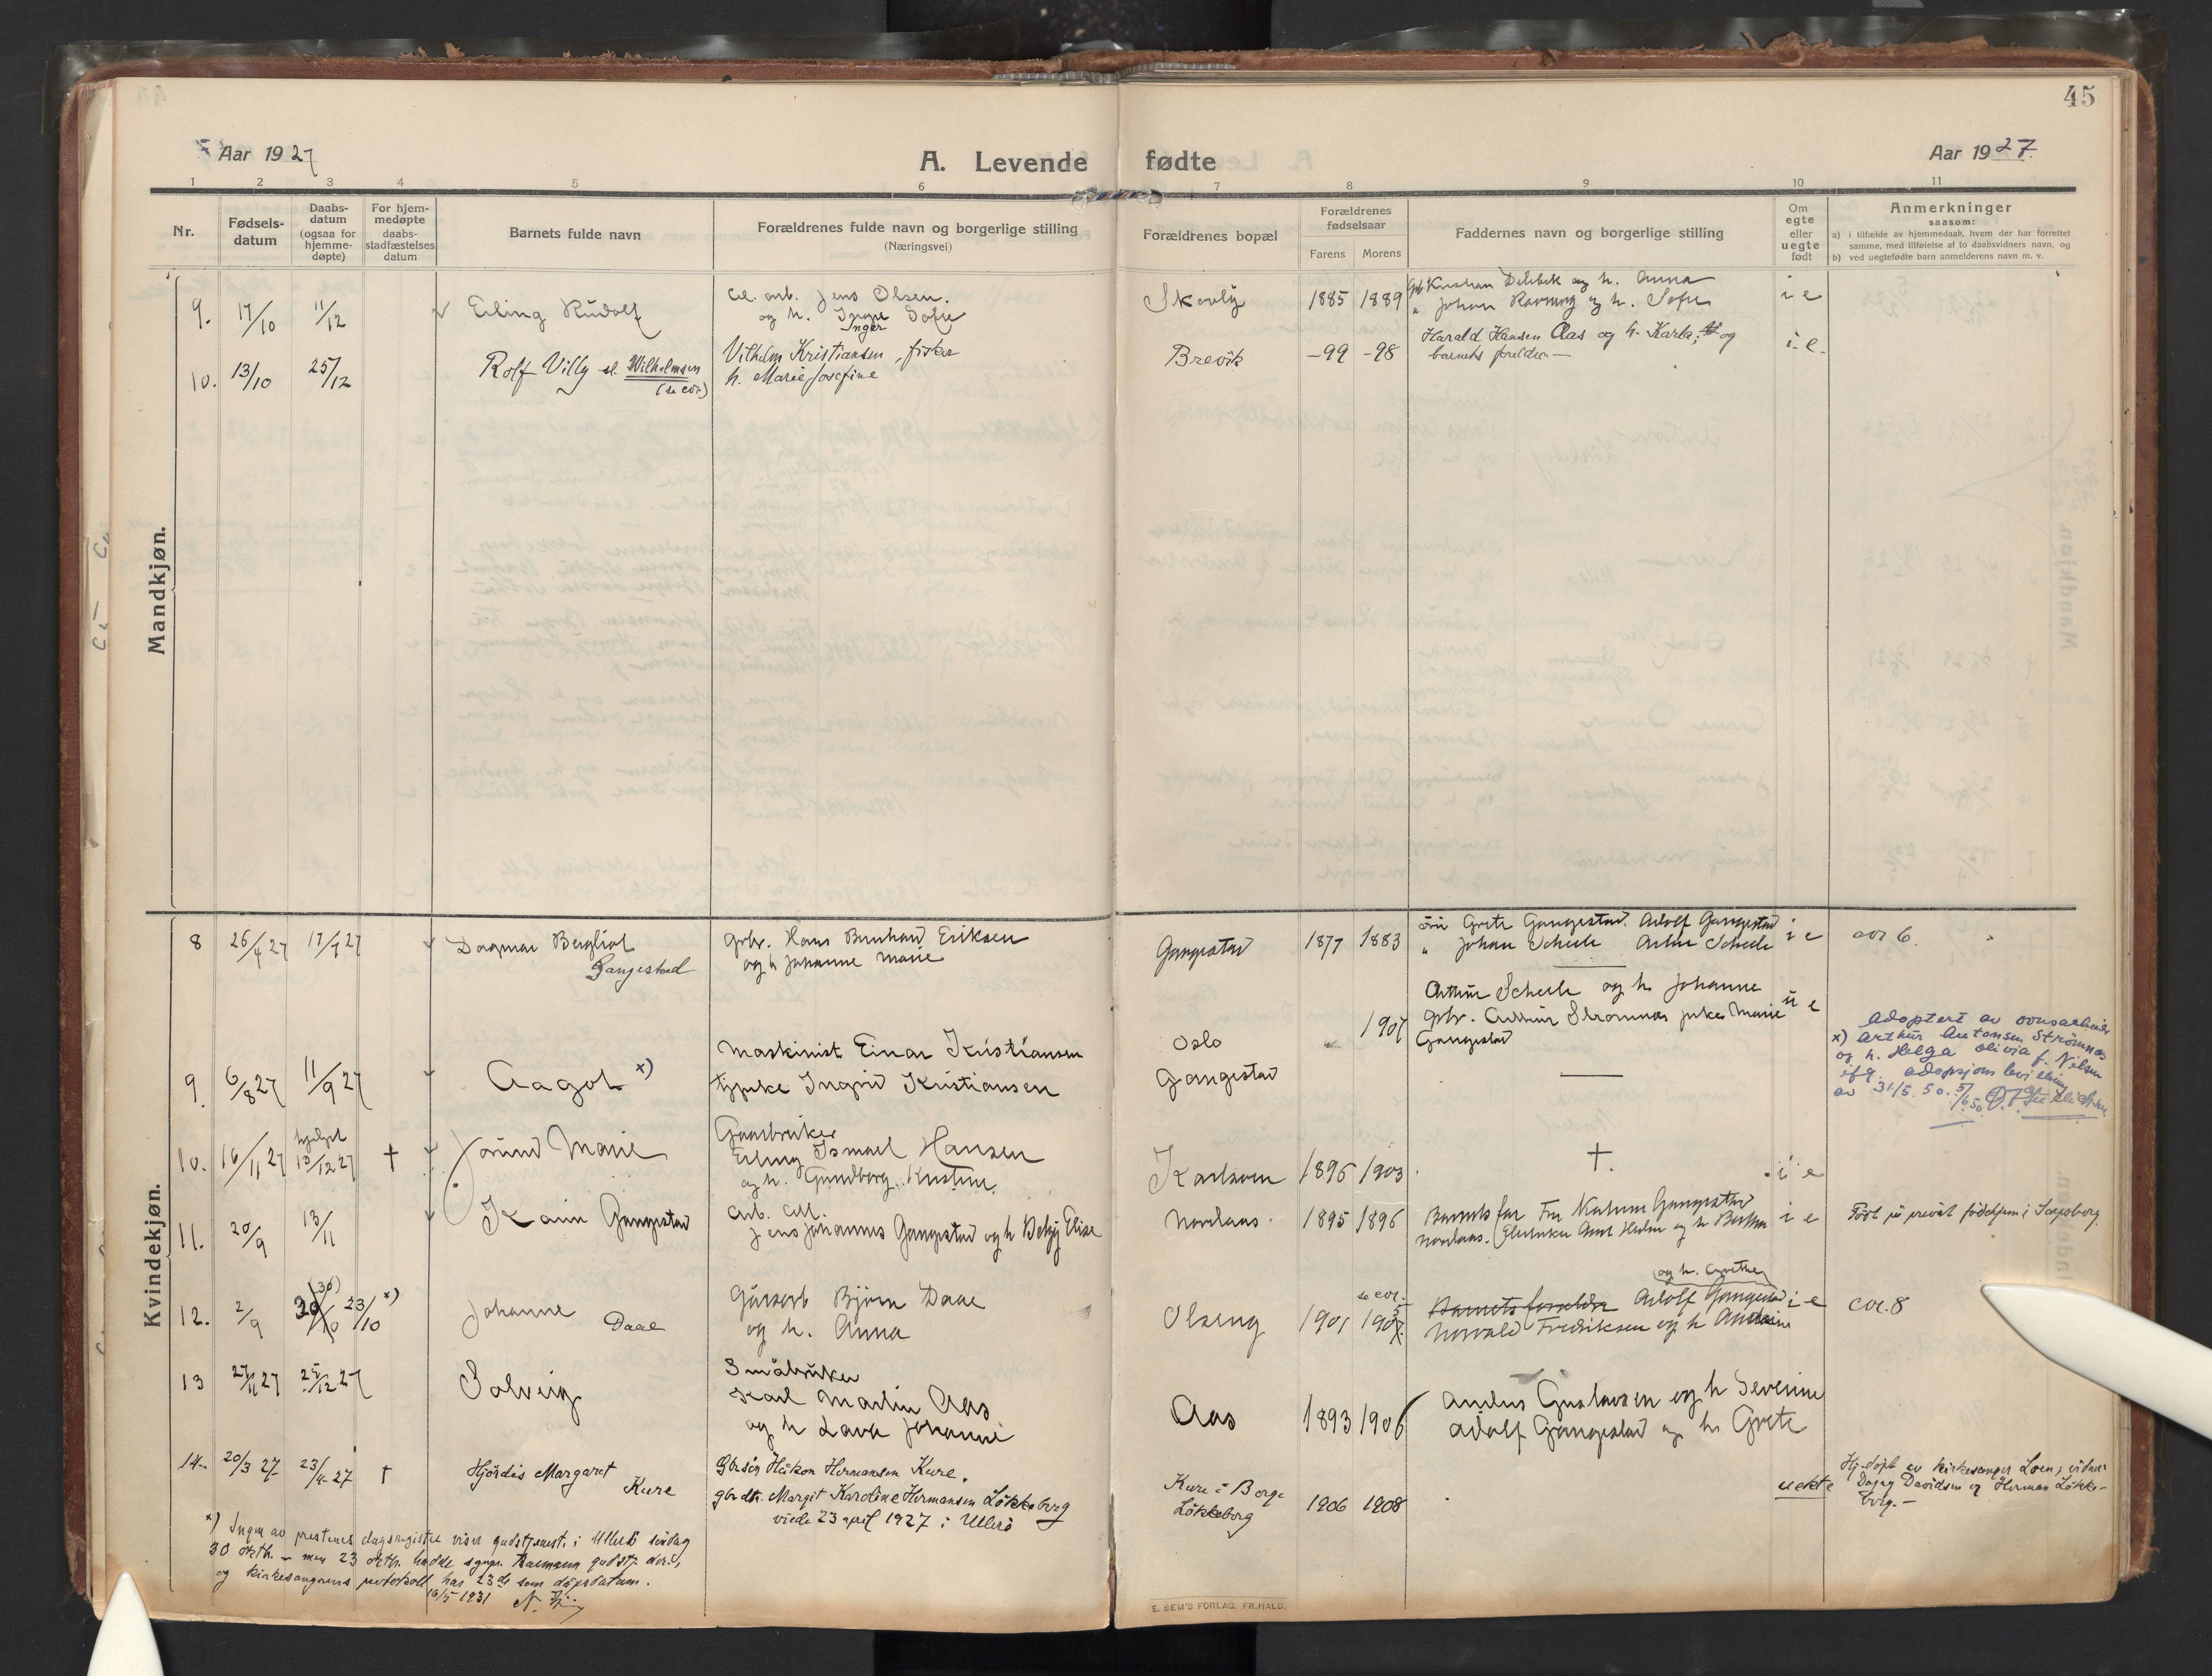 45
Aar 1927
A. Levende fødte
Aar 1927.
1 2 3 4 5 6 7 8 9 10 11
Nr.
Fødsels-
datum
Daabs-
datum
(ogsaa for
hjemme-
døpte)
For hjem-
medøpte
daabs-
stadfæstelses
datum
Barnets fulde navn
Forældrenes fulde navn og borgerlige stilling
(Næringsvei)
Forældrenes bopæl
Forældrenes
fødselsaar
Farens Morens
Faddernes navn og borgerlige stilling
Om
egte
eller
uegte
født
Anmerkninger
saasom:
a) i tilfælde av hjemmedaab, hvem der har forrettet
samme, med tilføielse af to daabsvidners navn, og
b) ved uegtefødte barn anmelderens navn m. v.
Mandkjøn.
9. 17/10 11/12 Erling Rudolf
Cel. arb. Jens Olsen.
og h. Inger Sofie
Inger
Skovly 1885 1889
Kristian og h. Anna
" Johan og h. Sofie
i e
10. 13/10 25/12 Rolf Villy Wilhelmsen
(se cor.)
Vilhelm Kristiansen, fisker
h. Marie Josefine
Brevik -99 -98
Harald Hansen Aas og h. Karla; og
barnets foreldre —
i e.
Kvindekjøn.
8 26/4 27 17/7 27 Dagmar Bergliot
Gangestad
Grbr. Hans Bernhard Eriksen
og h Johanne Marie
Gangestad 1877 1883
Grete Gangestad. Adolf Gangestad
" Johan Scheele Scheele
i e
cor 6.
9. 6/8 27 11/9 27 Aagot x)
Maskinist Einar Kristiansen
tjpike Ingrid Kristiansen
Oslo
Gangestad
1907
Arthur Scheele og h. Johanne
Grbr. Arthur Strømnes pike Marie
Gangestad
u e
Adoptert av
x) Arthur Antonsen Strømnes
og h. Helga Olivia f. Nilsen
ifg. adopsjons bevilling
av 31/5. 50. 5/6 50.
10. 16/11 27 13/12 27 † Jorund Marie
Gaardbruker
Erling Ismael Hansen
og h. Gundborg Kristine
1896 1903.
†.
i e
11. 20/9 13/11 Karin Gangestad
Arb. Cel.
Jens Johannes Gangestad og h Betzy Elise
Nordaas. 1895 1896
Barnets far Fru Gangestad
Nordaas. og h
i e
Født på privat fødehjem i Sarpsborg.
12. 2/9 (30) 30/10 23/10 x) Johanne
Daae
Gårdarb Bjørn Daae
og h. Anna
Olseng 1901 1905
se cor.
og h. Grethe
Barnets foreldre Adolf Gangestad
Norvald Fredriksen og h
i e
cor. 8
13 27/11 27 25/12 27 Solveig
Småbruker
Karl Martin Aas
og h Laura Johanne
Aas 1893 1906
Gustavsen og h Severine
Adolf Gangestad og h Grete
14. 20/3 27 23/4-27 † Hjördis Margaret
Kure
Gbrsön Håkon Hermansen Kure.
gbr.dtr. Margit Karoline Hermansen Lökkeberg
viede 23 april 1927 i Ullerö
Kure i Borge
Lökkeberg
1906 1908
uekte
Hj.döpt av kirkesanger Loen; vidner:
Dagny Davidsen og Herman Lökke-
berg. —
x) Ingen av prestenes dagsregistre viser gudstjenest. i Ullerö söndag
30 oktb. – men 23 oktb. hadde sgnpr. gudstj. der,
og kirkesangerens protokoll har 23de som dåpsdatum.
16/5 1931
E. SEM'S FORLAG, FR.HALD.